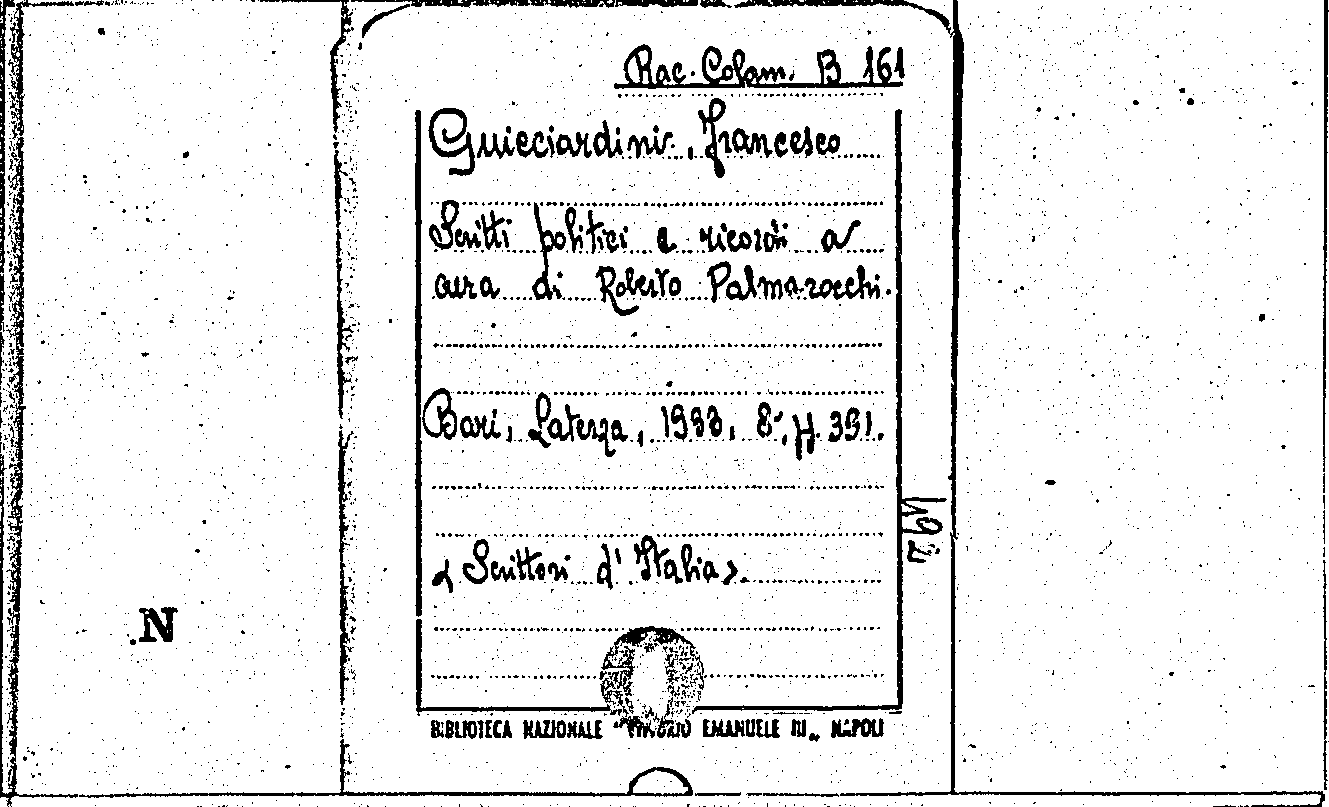 Rac. Colam. B 161
Guicciardini, Francesco
Scritti politici e ricordi a
cura di Roberto Palmarocchi.
Bari, Laterza, 1933, 8°, pp. 391.
« Scrittori d'Italia ».
492
N
BIBLIOTECA NAZIONALE "VITTORIO EMANUELE III„ NAPOLI